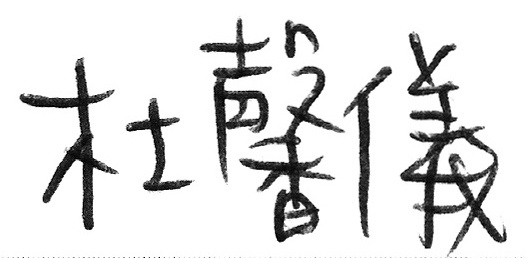 杜馨儀